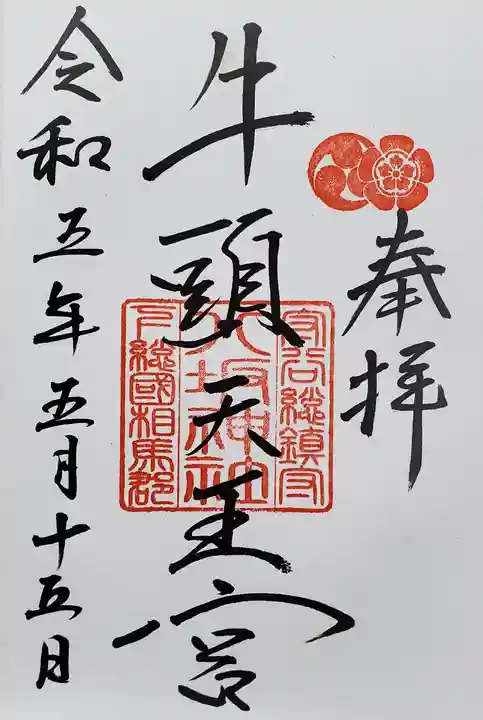 奉拝
牛頭天王宮
守谷総鎮守
八坂神社
下総國相馬郡
令和五年五月十五日